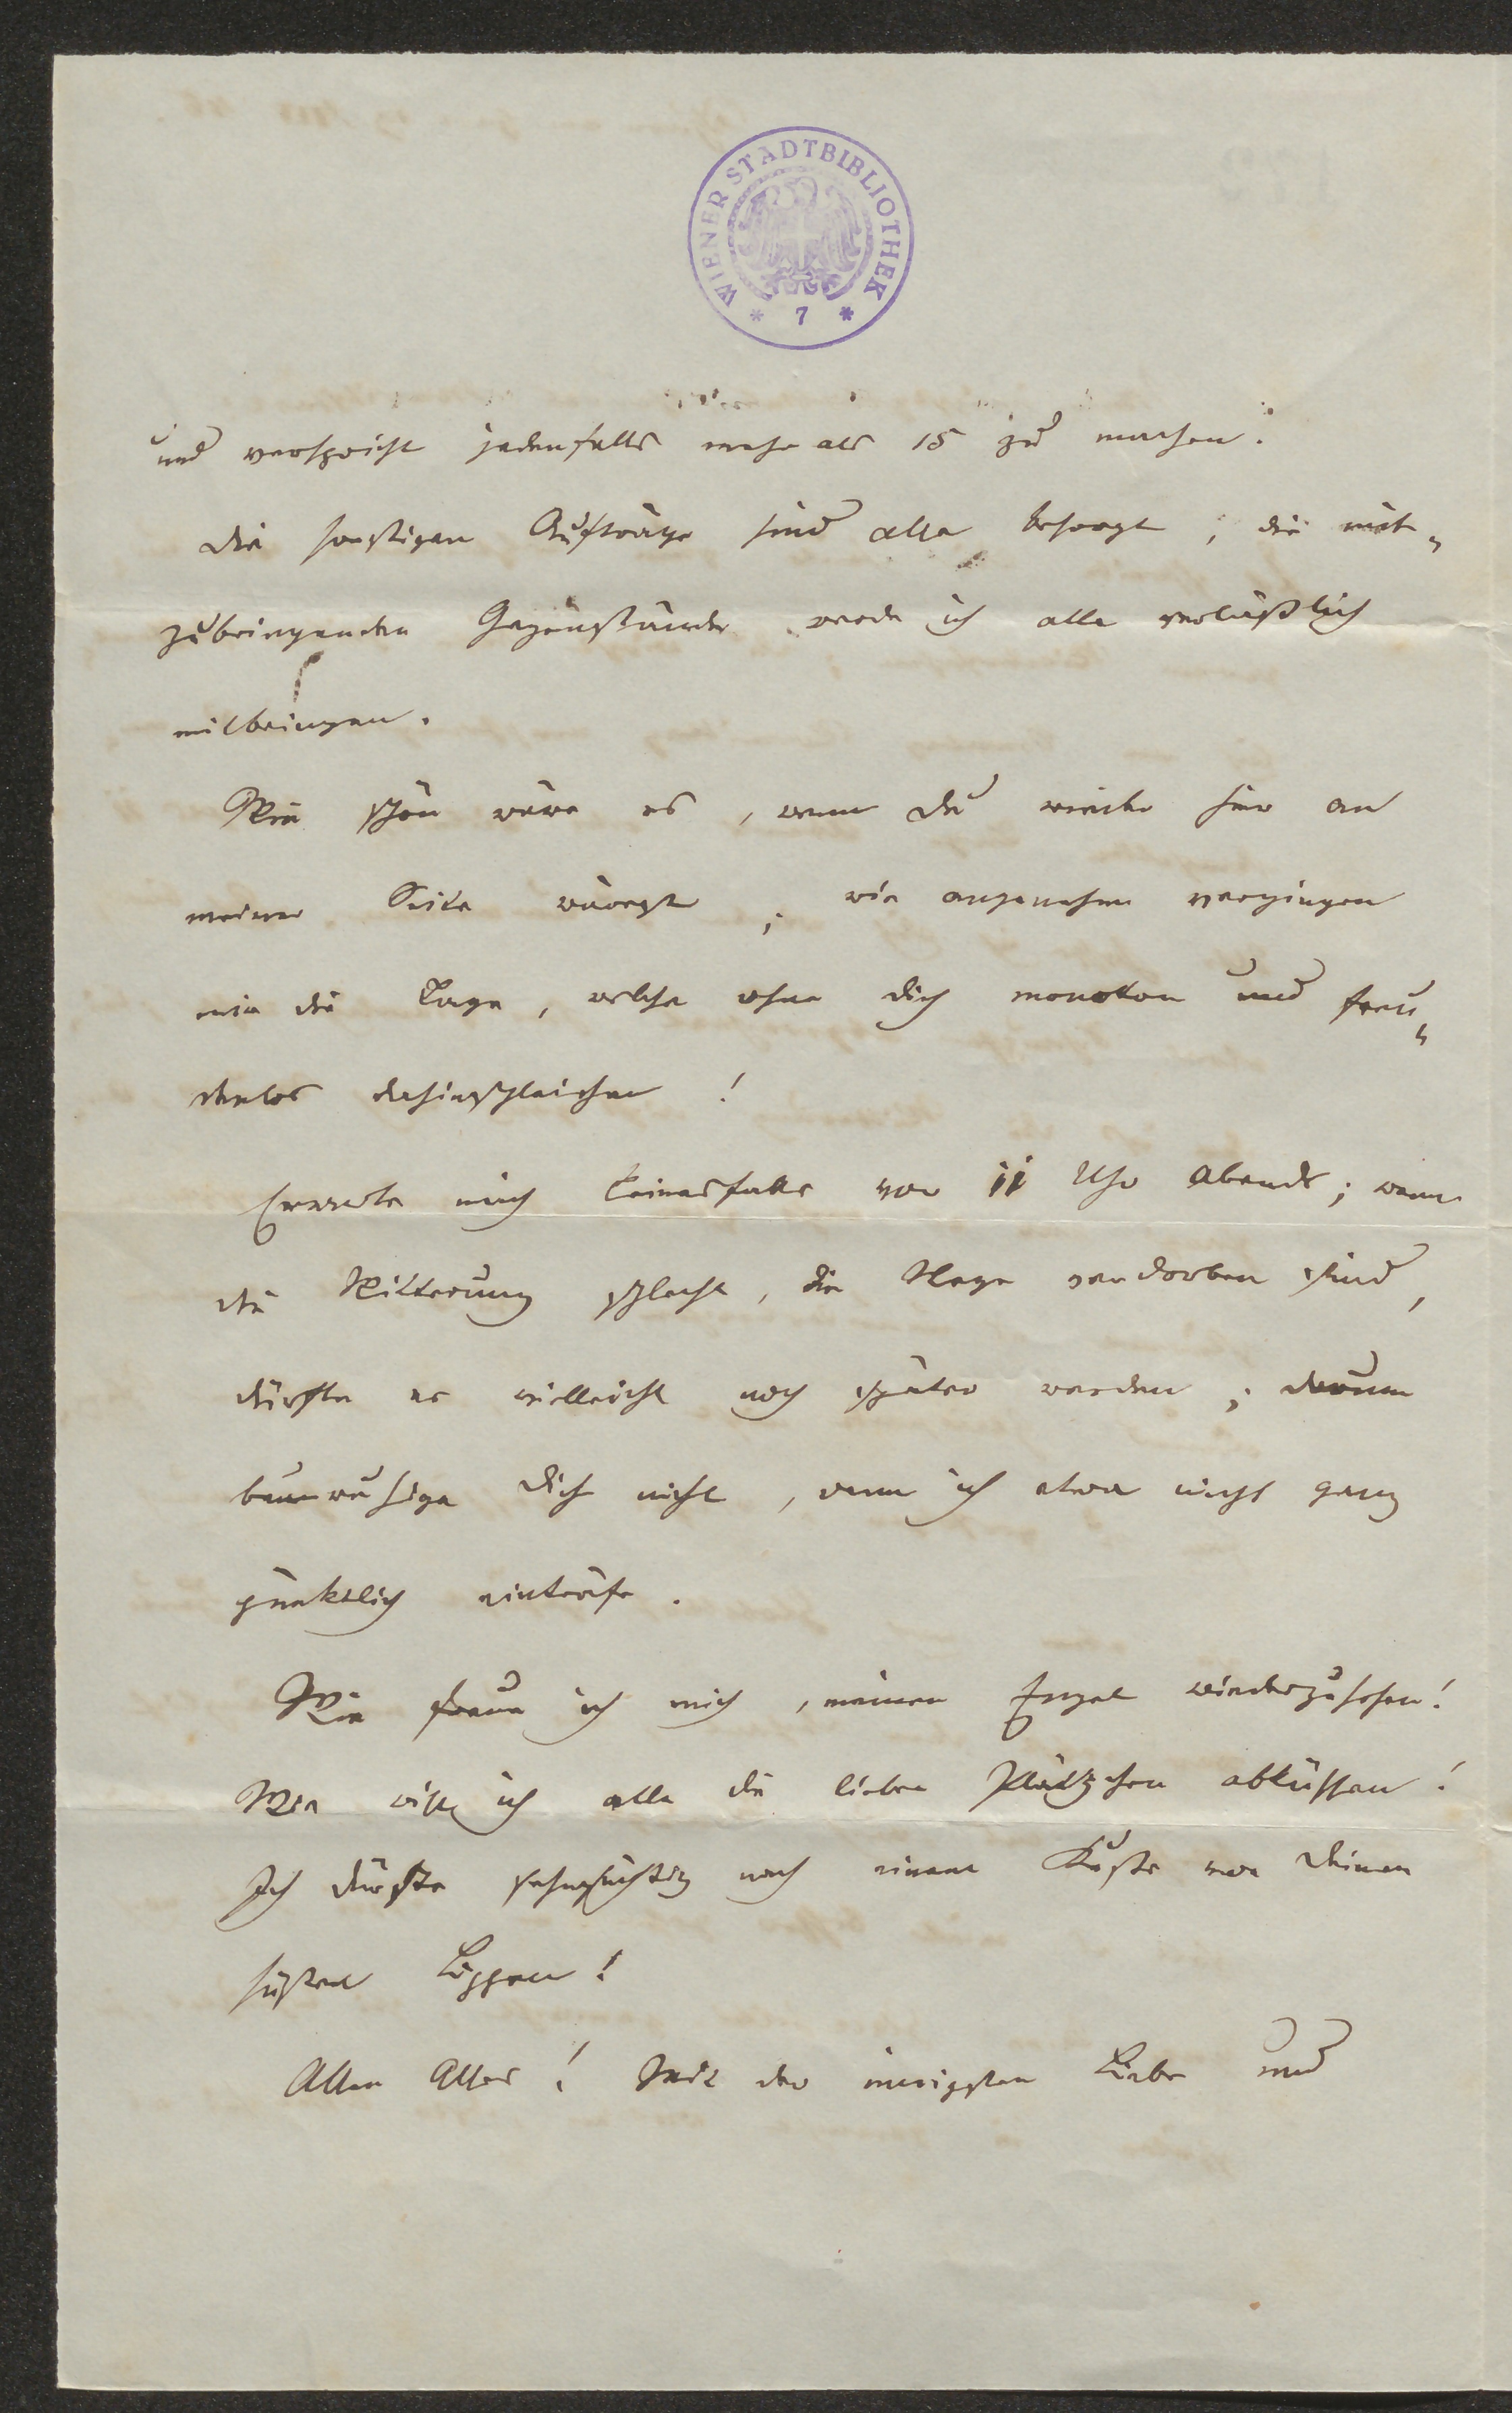 WIENER STADTBIBLIOTHEK
* 7 *
und verspricht jedenfalls mehr als 15 zu machen.
Die sonstigen Aufträge sind alle besorgt; die mit„
zubringenden Gegenstände werde ich alle verläßlich
mitbringen.
Wie schön wäre es, wenn Du wieder hier an
meiner Seite wärest; wie angenehm vergingen
mir die Tage, welche ohne Dich monoton und freu„
denlos dahinschleichen!
Erwarte mich keinesfalls vor 11 Uhr Abends; wenn
die Witterung schlecht, die Wege verdorben sind,
dürfte es vielleicht noch später werden; darum
beunruhige Dich nicht, wenn ich etwa nicht ganz
pünktlich einträfe.
Wie freue ich mich, meinen Engel wiederzusehen!
Wie will ich alle die lieben Plätzchen abküssen!
Ich dürste sehnsüchtig nach einem Kusse von Deinen
süßen Lippen!
Allen Alles! Mit der innigsten Liebe und